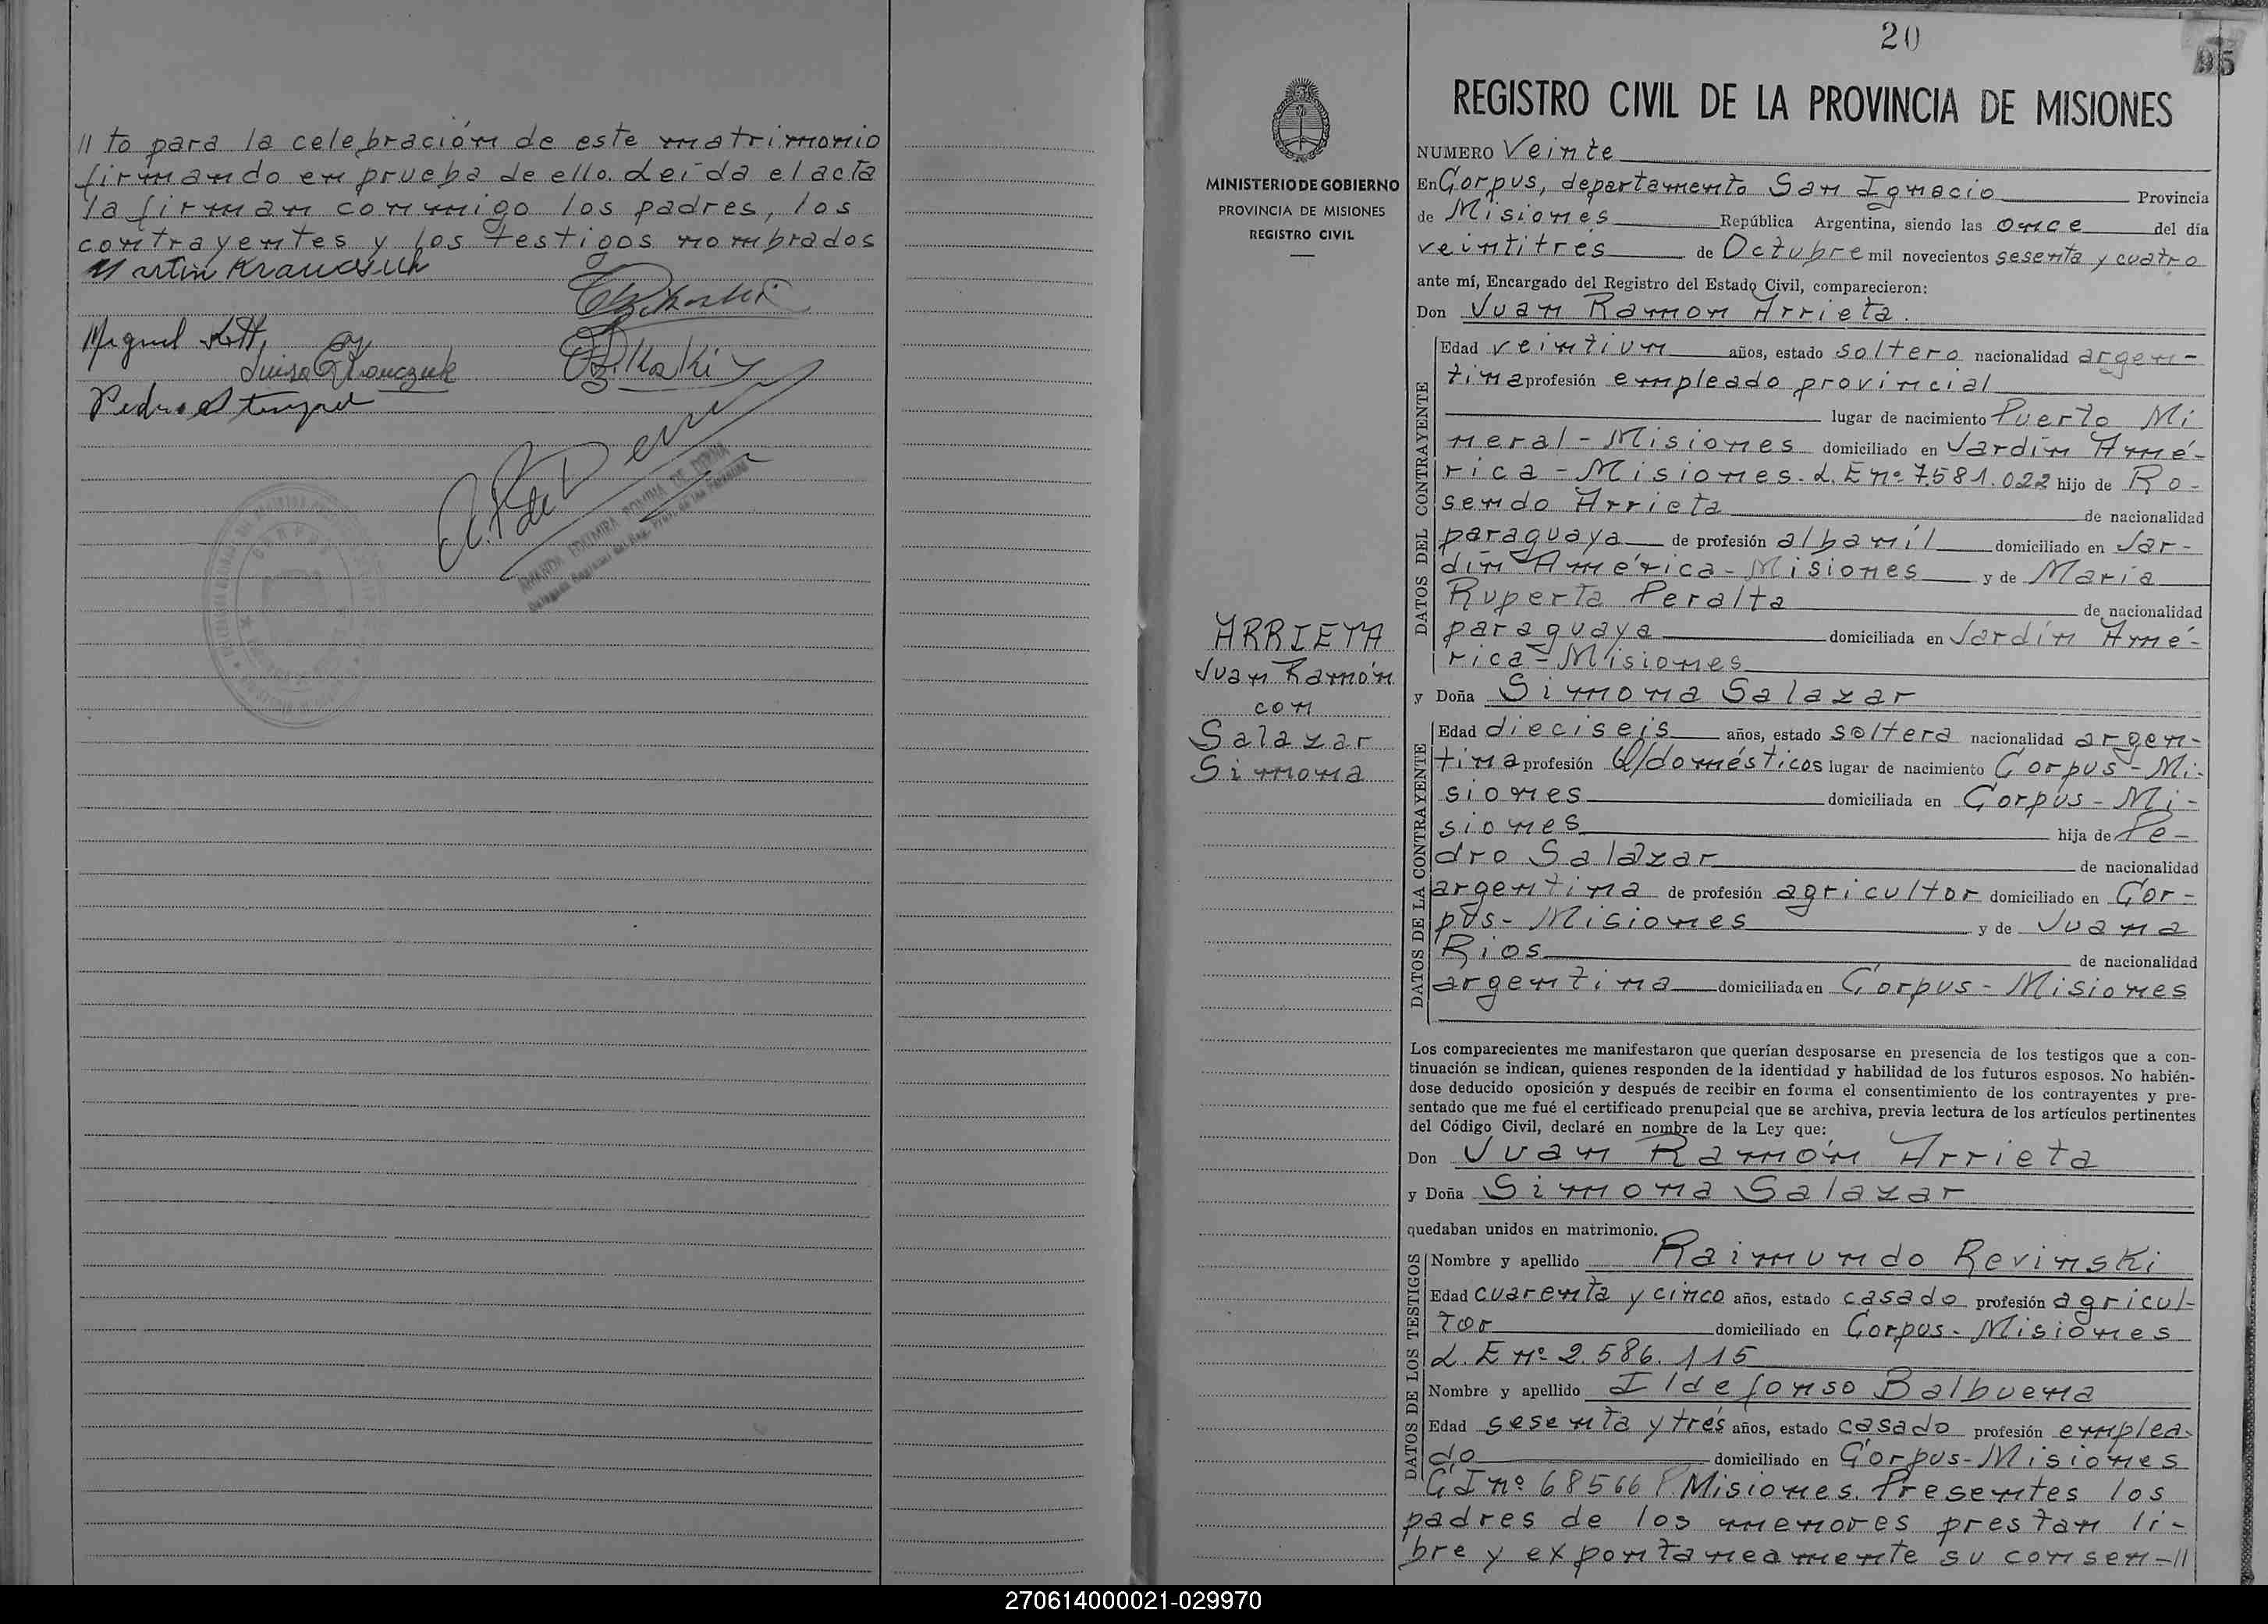 // to para la celebración de este matrimonio
firmando en prueba de ello. Leída el acta
la firman conmigo los padres, los
contrayentes y los testigos nombrados
Martin
Miguel
Luisa
Pedro
20
95
REGISTRO CIVIL DE LA PROVINCIA DE MISIONES
MINISTERIO DE GOBIERNO
PROVINCIA DE MISIONES
REGISTRO CIVIL
ARRIETA
Juan Ramón
con
Salazar
Simona
NUMERO Veinte
En Corpus, departamento San Ignacio Provincia
de Misiones República Argentina, siendo las once del día
veintitrés de Octubre mil novecientos sesenta y cuatro
ante mí, Encargado del Registro del Estado Civil, comparecieron:
Don Juan Ramon Arrieta.
DATOS DEL CONTRAYENTE
Edad veintiun años, estado soltero nacionalidad argen-
tina profesión empleado provincial
lugar de nacimiento Puerto Mi
neral - Misiones domiciliado en Jardín Amé-
rica - Misiones. L. E nº 7.581.022 hijo de Ro-
sendo Arrieta de nacionalidad
paraguaya de profesión albañil domiciliado en Jar-
dín América - Misiones y de María
Ruperta Peralta de nacionalidad
paraguaya domiciliada en Jardín Amé-
rica - Misiones
y Doña Simona Salazar
DATOS DE LA CONTRAYENTE
Edad dieciseis años, estado soltera nacionalidad argen-
tina profesión Q/domésticos lugar de nacimiento Corpus - Mi-
siones domiciliada en Corpus - Mi-
siones hija de Pe-
dro Salazar de nacionalidad
argentina de profesión agricultor domiciliado en Cor-
pus - Misiones y de Juana
Rios de nacionalidad
argentina domiciliada en Corpus - Misiones
Los comparecientes me manifestaron que querían desposarse en presencia de los testigos que a con-
tinuación se indican, quienes responden de la identidad y habilidad de los futuros esposos. No habién-
dose deducido oposición y después de recibir en forma el consentimiento de los contrayentes y pre-
sentado que me fué el certificado prenupcial que se archiva, previa lectura de los artículos pertinentes
del Código Civil, declaré en nombre de la Ley que:
Don Juan Ramón Arrieta
y Doña Simona Salazar
quedaban unidos en matrimonio.
DATOS DE LOS TESTIGOS
Nombre y apellido Raimundo Revinski
Edad cuarenta y cinco años, estado casado profesión agricul-
tor domiciliado en Corpus - Misiones
L. E nº 2.586.115
Nombre y apellido Ildefonso Balbuena
Edad sesenta y trés años, estado casado profesión emplea-
do domiciliado en Corpus - Misiones
C I nº 68566 P. Misiones. Presentes los
padres de los menores prestan li-
bre y expontaneamente su consen-//
270614000021-029970